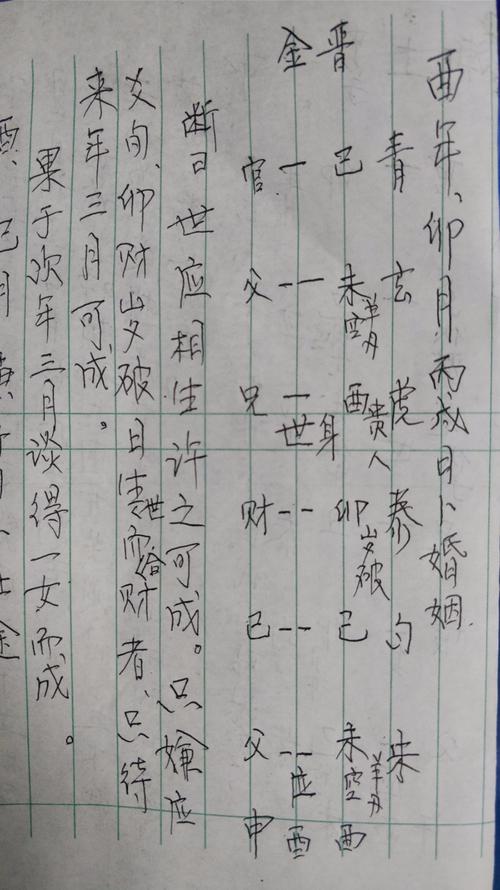 酉年、卯月丙戌日卜婚姻.
青 玄 虎 秦 勾 朱
晋 巳 未空 羊刃 酉贵人 卯岁破 巳 未空 羊刃 酉
金 一 -- 一世身 -- -- --应 酉
官 父 兄 财 巳 父 申
断曰 世应相生许之可成。只嫌应
爻旬、卯财岁破日生世而合财者、只待
来年三月可成。
果于次年三月谈得一女而成。
酉、巳月